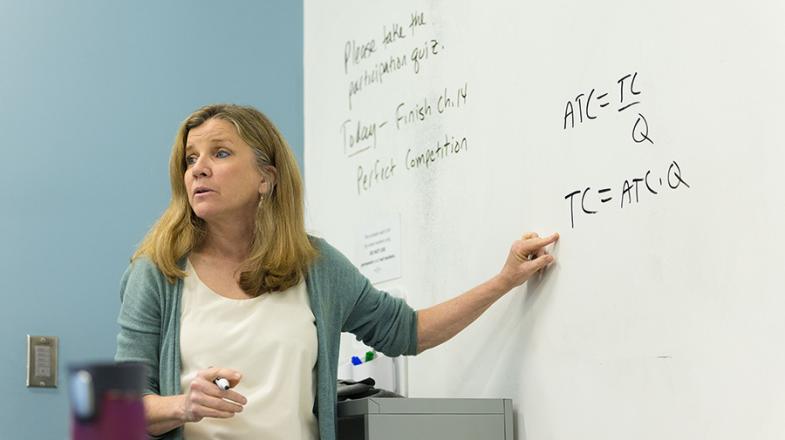 Please take the
participation quiz.
Today - Finish Ch. 14
Perfect Competition
ATC = TC
Q
TC = ATC · Q